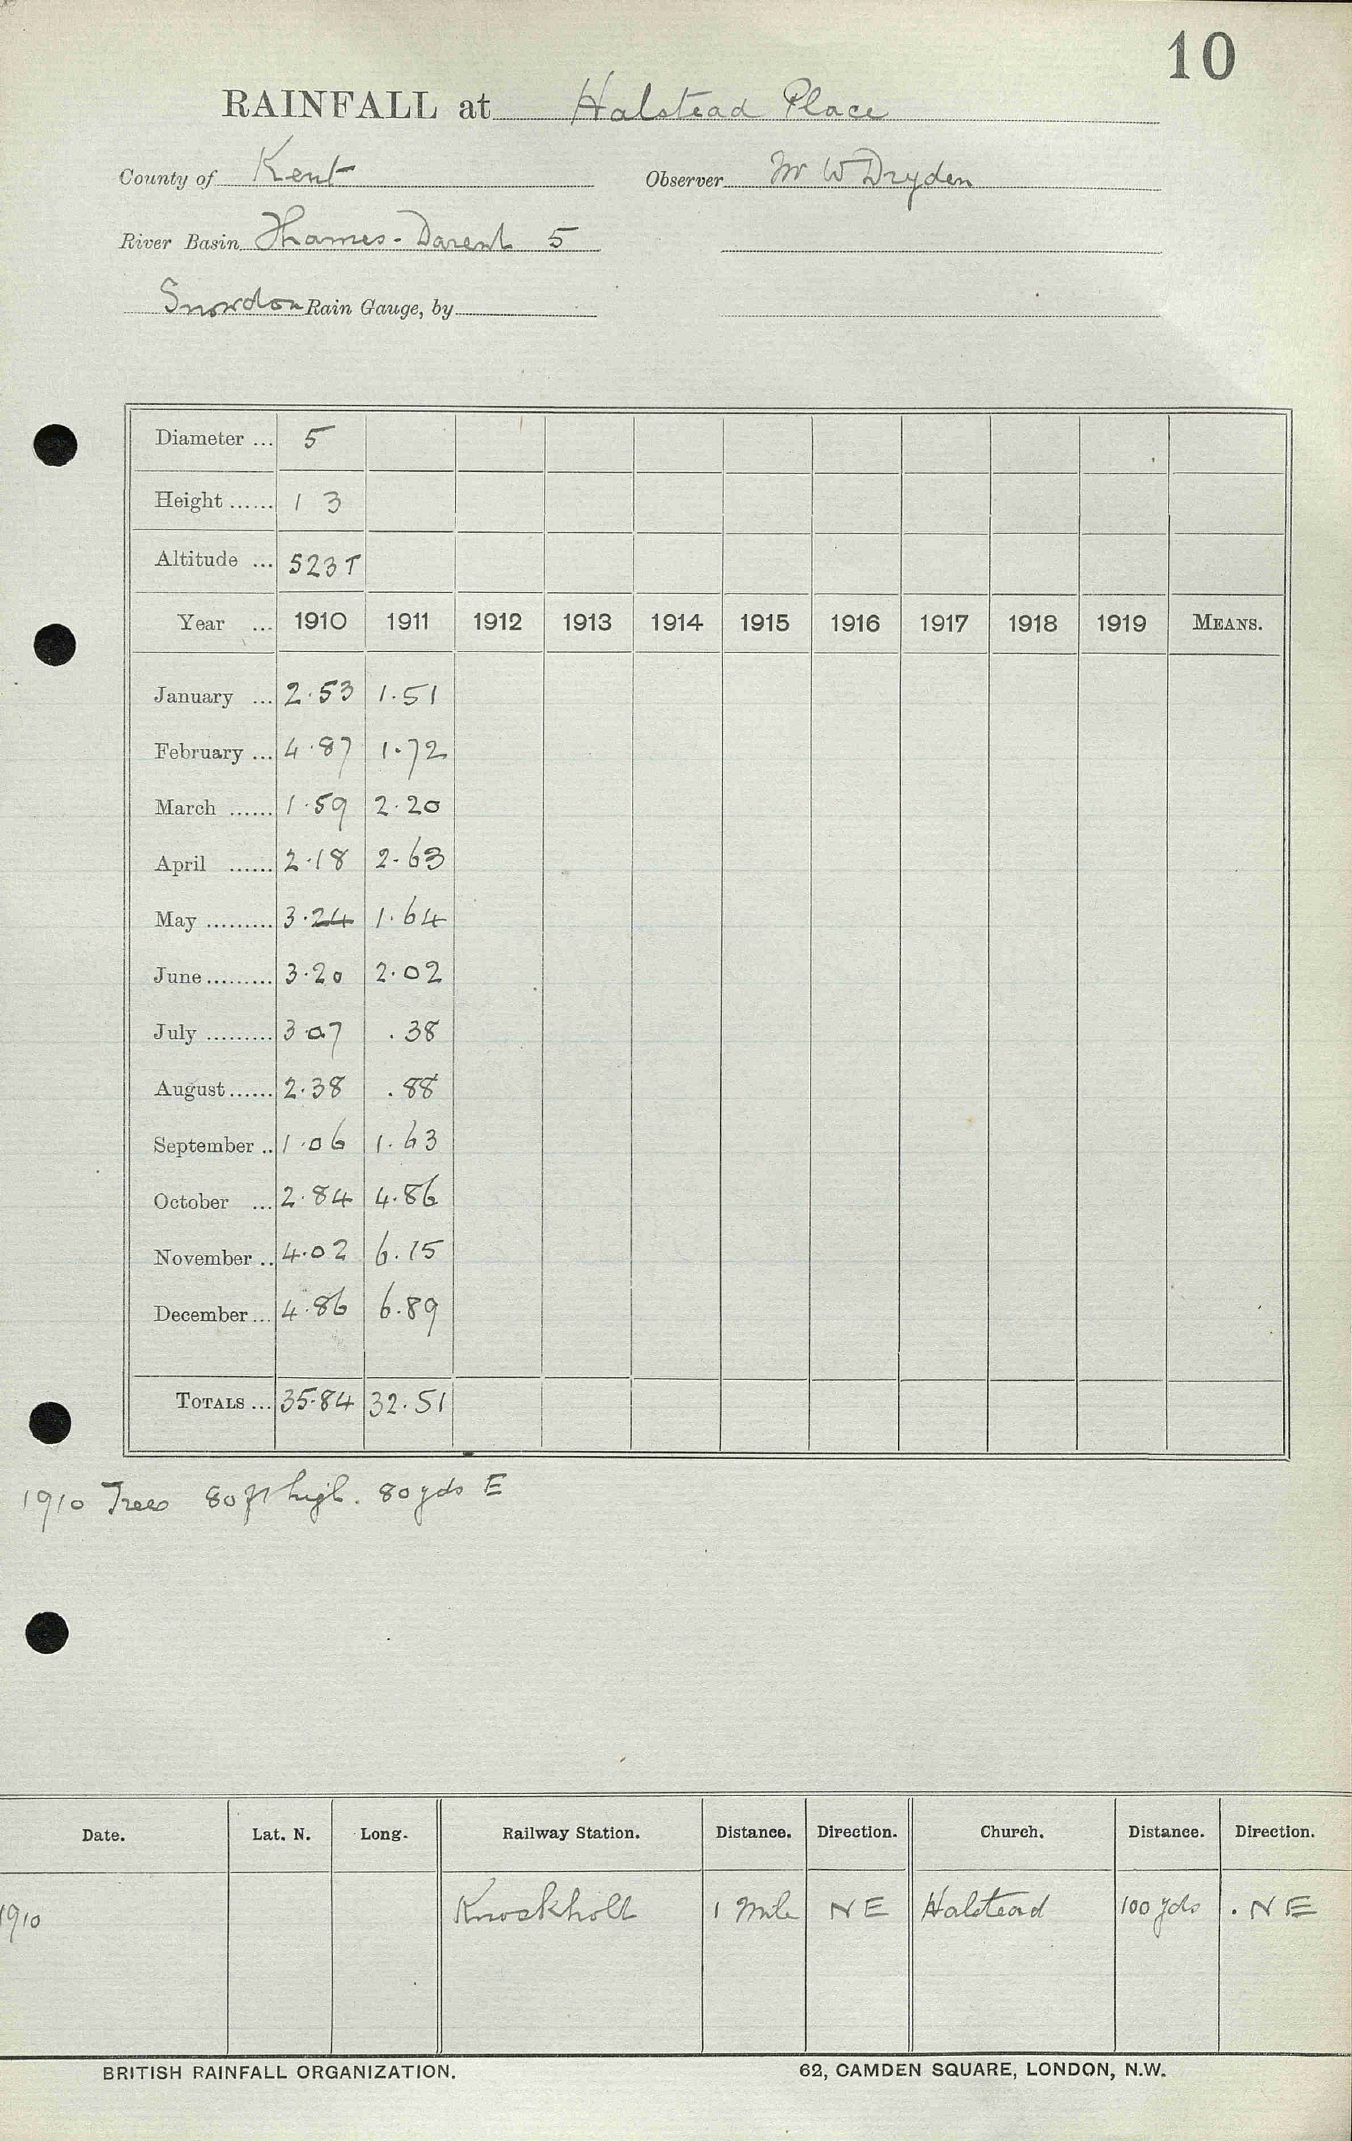 10
RAINFALL at Halstead Place
County of Kent Observer Mr W Dryden
River Basin Thames-Darent 5
Snowdon Rain Gauge, by
Diameter ... 5
Height ...... 1 3
Altitude ... 523 T
Year ... 1910 1911 1912 1913 1914 1915 1916 1917 1918 1919 MEANS.
January ... 2.53 1.51
February ... 4.87 1.72
March ...... 1.59 2.20
April ...... 2.18 2.63
May ......... 3.24 1.64
June ......... 3.20 2.02
July ......... 3 07 .38
August ...... 2.38 .88
September .. 1.06 1.63
October ... 2.84 4.86
November .. 4.02 6.15
December ... 4.86 6.89
TOTALS ... 35.84 32.51
1910 Trees 80 ft high. 80 yds E
Date. Lat. N. Long. Railway Station. Distance. Direction. Church. Distance. Direction.
1910 Knockholt 1 Mile NE Halstead 100 yds . NE
BRITISH RAINFALL ORGANIZATION. 62, CAMDEN SQUARE, LONDON, N.W.